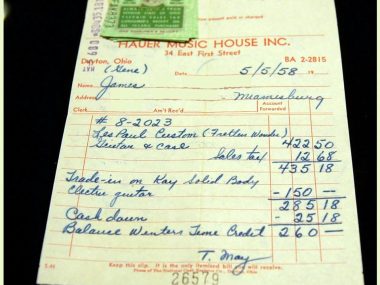 HAUER MUSIC HOUSE INC.
34 East First Street
Dayton, Ohio BA 2-2815
(Gene) Date 5/5/58 19
Name James
Address Miamesburg
Clerk Am't Rec'd. Account Forwarded
# 8-2023
Les Paul Custom (Fretless Wonder)
Guitar & case 422 50
Sales tax 12 68
435 18
Trade-in on Kay Solid Body
Electric guitar -150 —
285 18
Cash down -25 18
Balance Winters Time Credit 260 —
T. May
Keep this slip. It is the only itemized bill you will receive.
26579